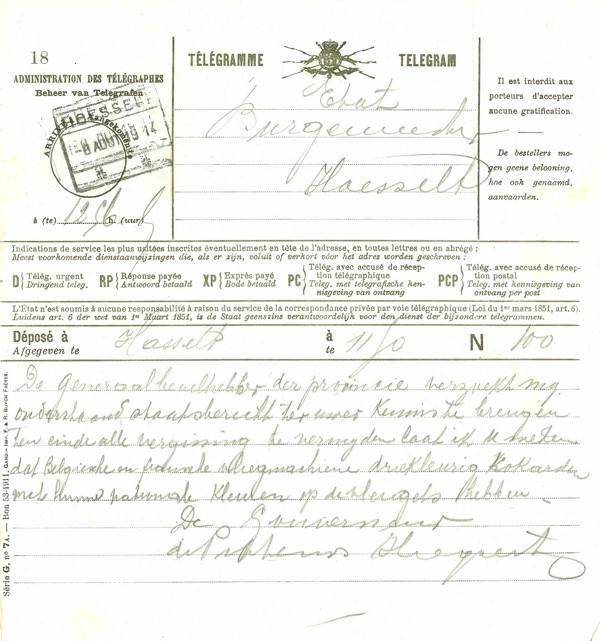 18
ADMINISTRATION DES TÉLÉGRAPHES
Beheer van Telegrafen
HOESSELT
8 AOUT 1914
à (te) 12 56 h. (uur)
TÉLÉGRAMME TELEGRAM
Etat
Burgemeester
Hoesselt
Il est interdit aux
porteurs d'accepter
aucune gratification.
De bestellers mo-
gen geene belooning,
hoe ook genaamd,
aanvaarden.
Indications de service les plus usitées inscrites éventuellement en tête de l'adresse, en toutes lettres ou en abrégé :
Meest voorkomende dienstaanwijzingen die, als er zijn, voluit of verkort vóór het adres worden geschreven :
D Télég. urgent
Dringend teleg.
RP Réponse payée
Antwoord betaald
XP Exprès payé
Bode betaald
PC Télég. avec accusé de récep-
tion télégraphique
Teleg. met telegrafische ken-
nisgeving van ontvang
PCP Télég. avec accusé de récep-
tion postal
Teleg. met kennisgeving van
ontvang per post
L'État n'est soumis à aucune responsabilité à raison du service de la correspondance privée par voie télégraphique (Loi du 1er mars 1851, art. 6).
Luidens art. 6 der wet van 1n Maart 1851, is de Staat geenszins verantwoordelijk voor den dienst der bijzondere telegrammen.
Déposé à Hasselt à 11/0 N 100
Afgegeven te te
De Generaal bevelhebber der provincie verzoekt mij
onderstaand staatsbericht ter uwer kennis te brengen
ten einde alle vergissing te vermyden laat ik U weten
dat Belgische en fransche vliegmachiene driekleurig Kokarden
met hunne nationale kleuren op de vleugels hebben
De Gouverneur
de Pitteurs Hiegaerts
Série G, no 7A. — Bon 53-1911. Gand.- Imp. F. & R. Buyck Frères.